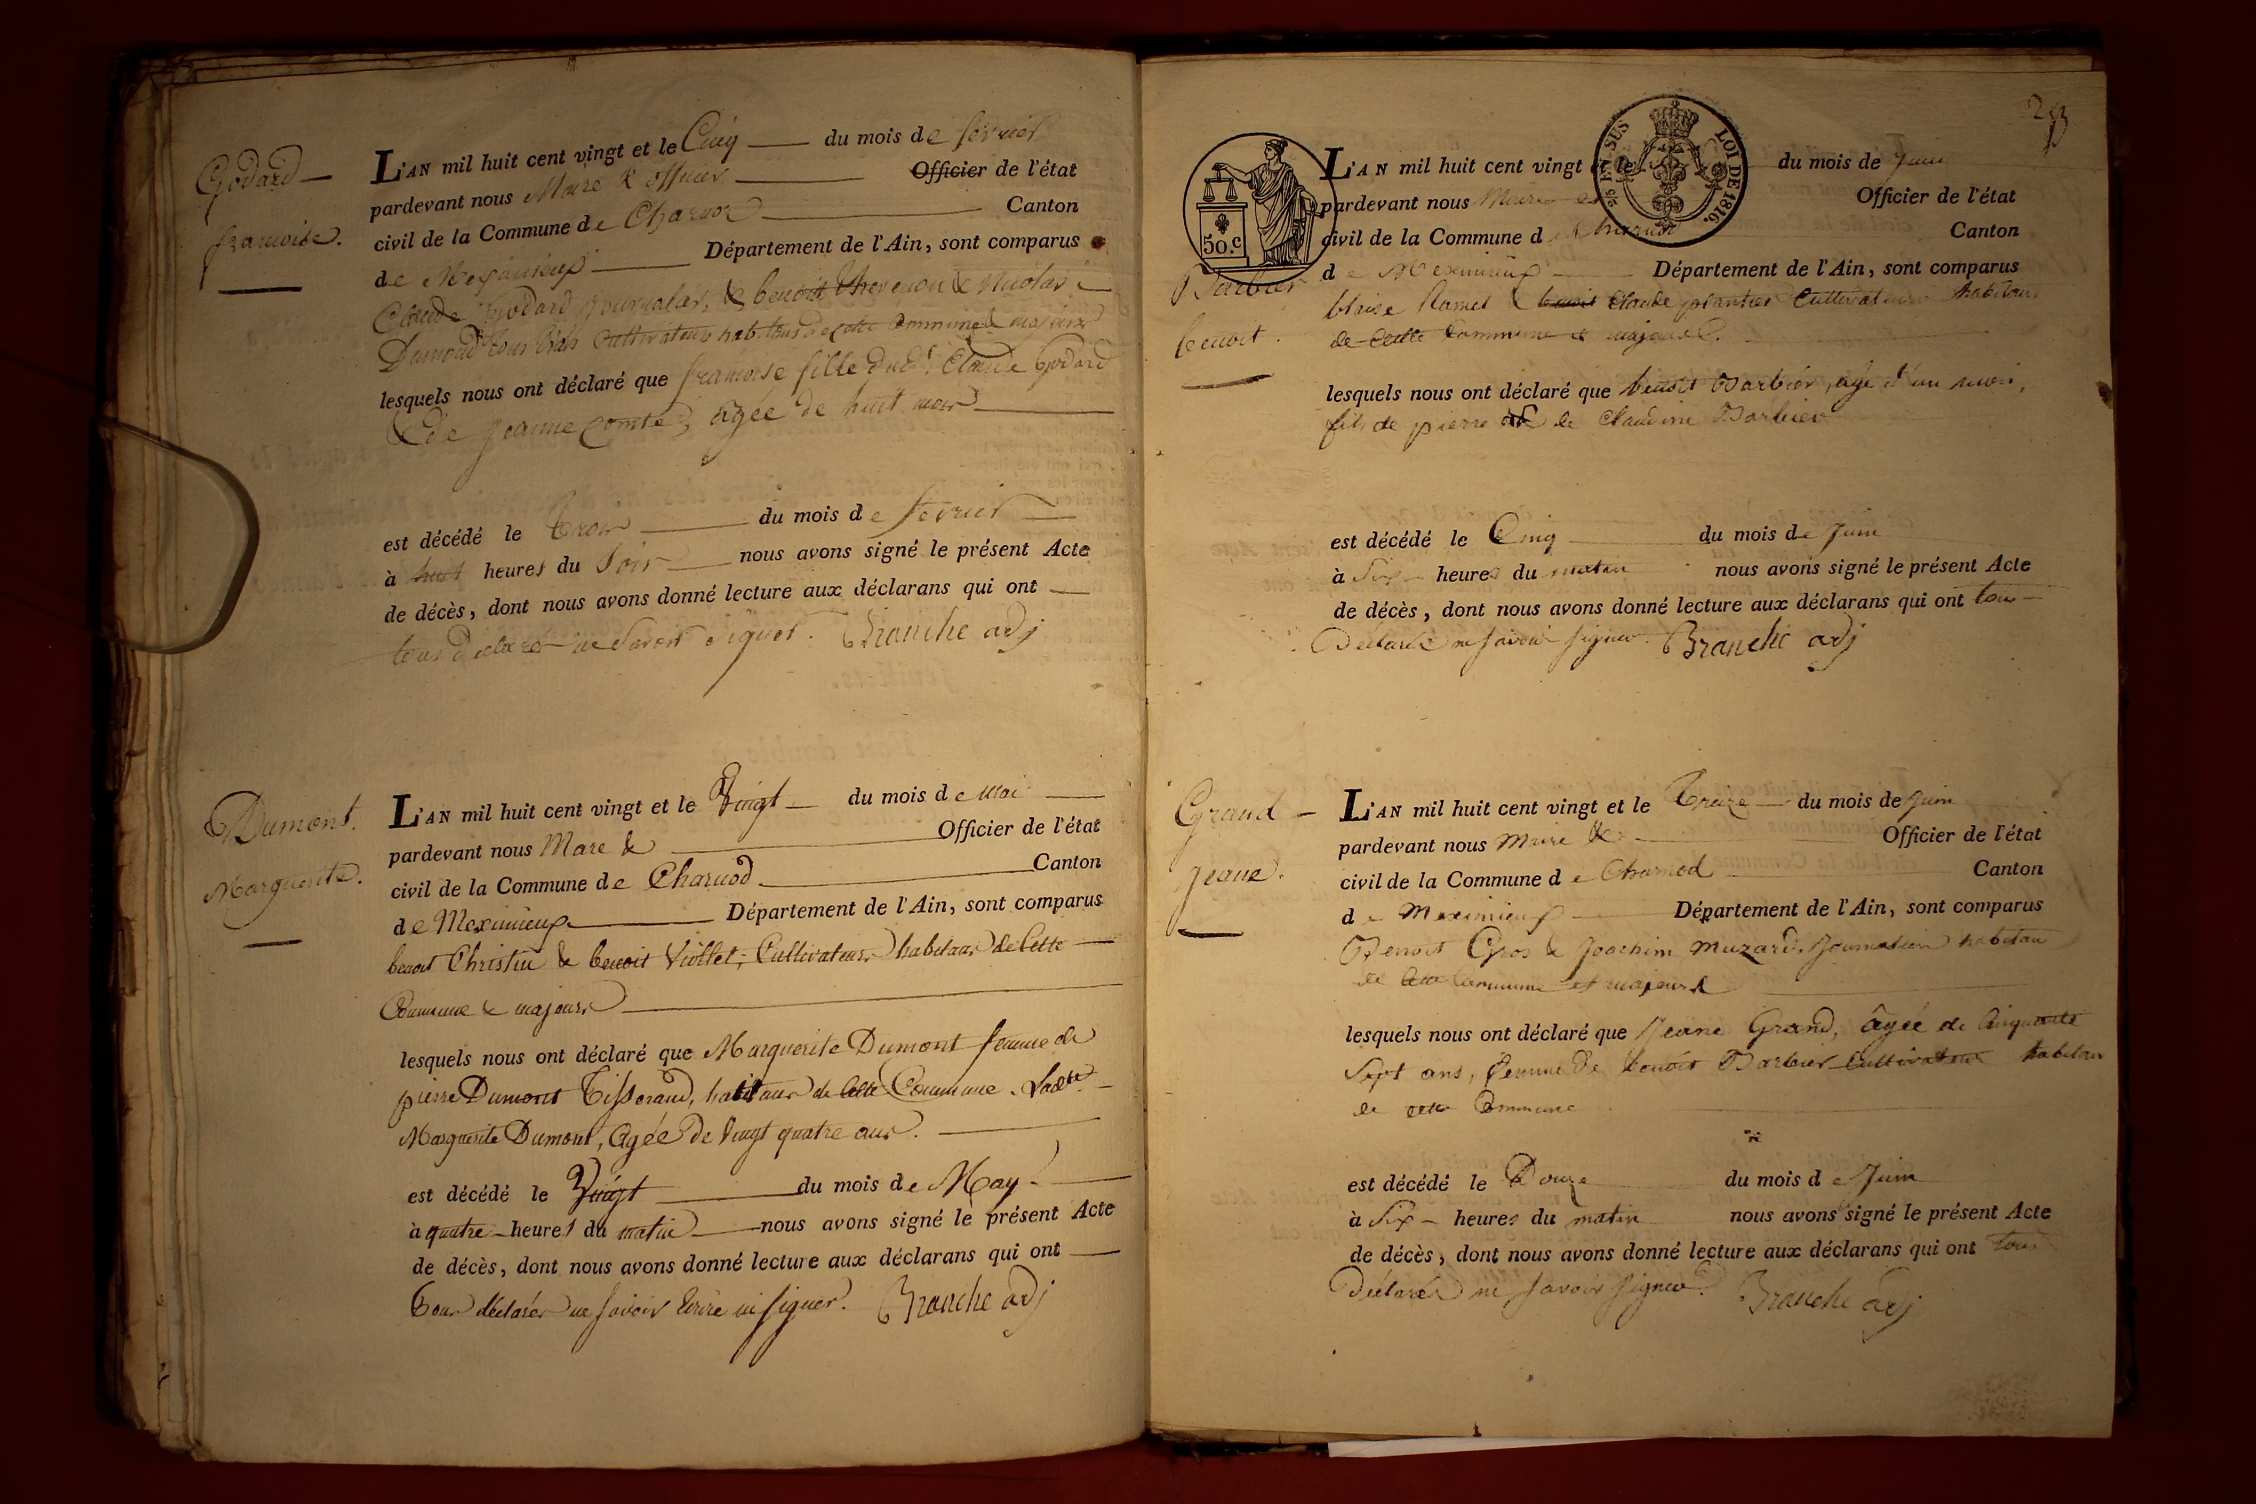 Godard
françoise.
L'AN mil huit cent vingt et le Cinq du mois de fevrier
pardevant nous Maire & officier Officier de l'état
civil de la Commune de Charnoz Canton
de Meximieux Département de l'Ain, sont comparus
Claude Godard journalier, & benoit Thevenon & Nicolas
Dumond tous trois Cultivateurs habitans de cette Commune & majeurs
lesquels nous ont déclaré que françoise fille dudt Claude Godard
& de jeanne Comte, agée de huit mois
est décédé le trois du mois de fevrier
à huit heures du Soir nous avons signé le présent Acte
de décès, dont nous avons donné lecture aux déclarans qui ont
tous déclaré ne Savoir signer. Branche adj
Dumont.
Marguerite.
L'AN mil huit cent vingt et le Vingt du mois de mai
pardevant nous Mare & Officier de l'état
civil de la Commune de Charnod Canton
de Meximieux Département de l'Ain, sont comparus
benoit Christin & benoit Viollet, Cultivateurs habitans de Cette
Commune & majeurs
lesquels nous ont déclaré que Marguerite Dumont femme de
pierre Dumont Tisserand, habitans de Cette Commune. Ladte
Marguerite Dumont, Agée de Vingt quatre ans.
est décédé le Vingt du mois de May
à quatre heures du matin nous avons signé le présent Acte
de décès, dont nous avons donné lecture aux déclarans qui ont
Tous déclarés ne Savoir Ecrire ni signer. Branche adj
50.c
3/5 EN SUS LOI DE 1816.
Barbier
benoit.
L'AN mil huit cent vingt et le du mois de Juin
pardevant nous Maire Officier de l'état
civil de la Commune de Charnod Canton
de Meximieux Département de l'Ain, sont comparus
blaise Ramel & Claude plantier Cultivateurs habitans
de Cette Commune et majeurs.
lesquels nous ont déclaré que benoit Barbier, agé d'un mois,
fils de pierre de Claudine Barbier
est décédé le Cinq du mois de Juin
à Six heures du matin nous avons signé le présent Acte
de décès, dont nous avons donné lecture aux déclarans qui ont tous
Déclaré ne Savoir signer. Branche adj
Grand
jeane.
L'AN mil huit cent vingt et le Treize du mois de Juin
pardevant nous Maire & Officier de l'état
civil de la Commune de Charnod Canton
de Meximieux Département de l'Ain, sont comparus
Benoit Gros & Joachim Muzard, Journalier habitans
de Cette Commune et majeurs
lesquels nous ont déclaré que Jeane Grand, âgée de Cinquante
Sept ans, femme de benoit Barbier Cultivateur habitans
de cette Commune
est décédé le Douze du mois de Juin
à Six heures du matin nous avons signé le présent Acte
de décès, dont nous avons donné lecture aux déclarans qui ont tous
Déclarés ne Savoir signer. Branche adj